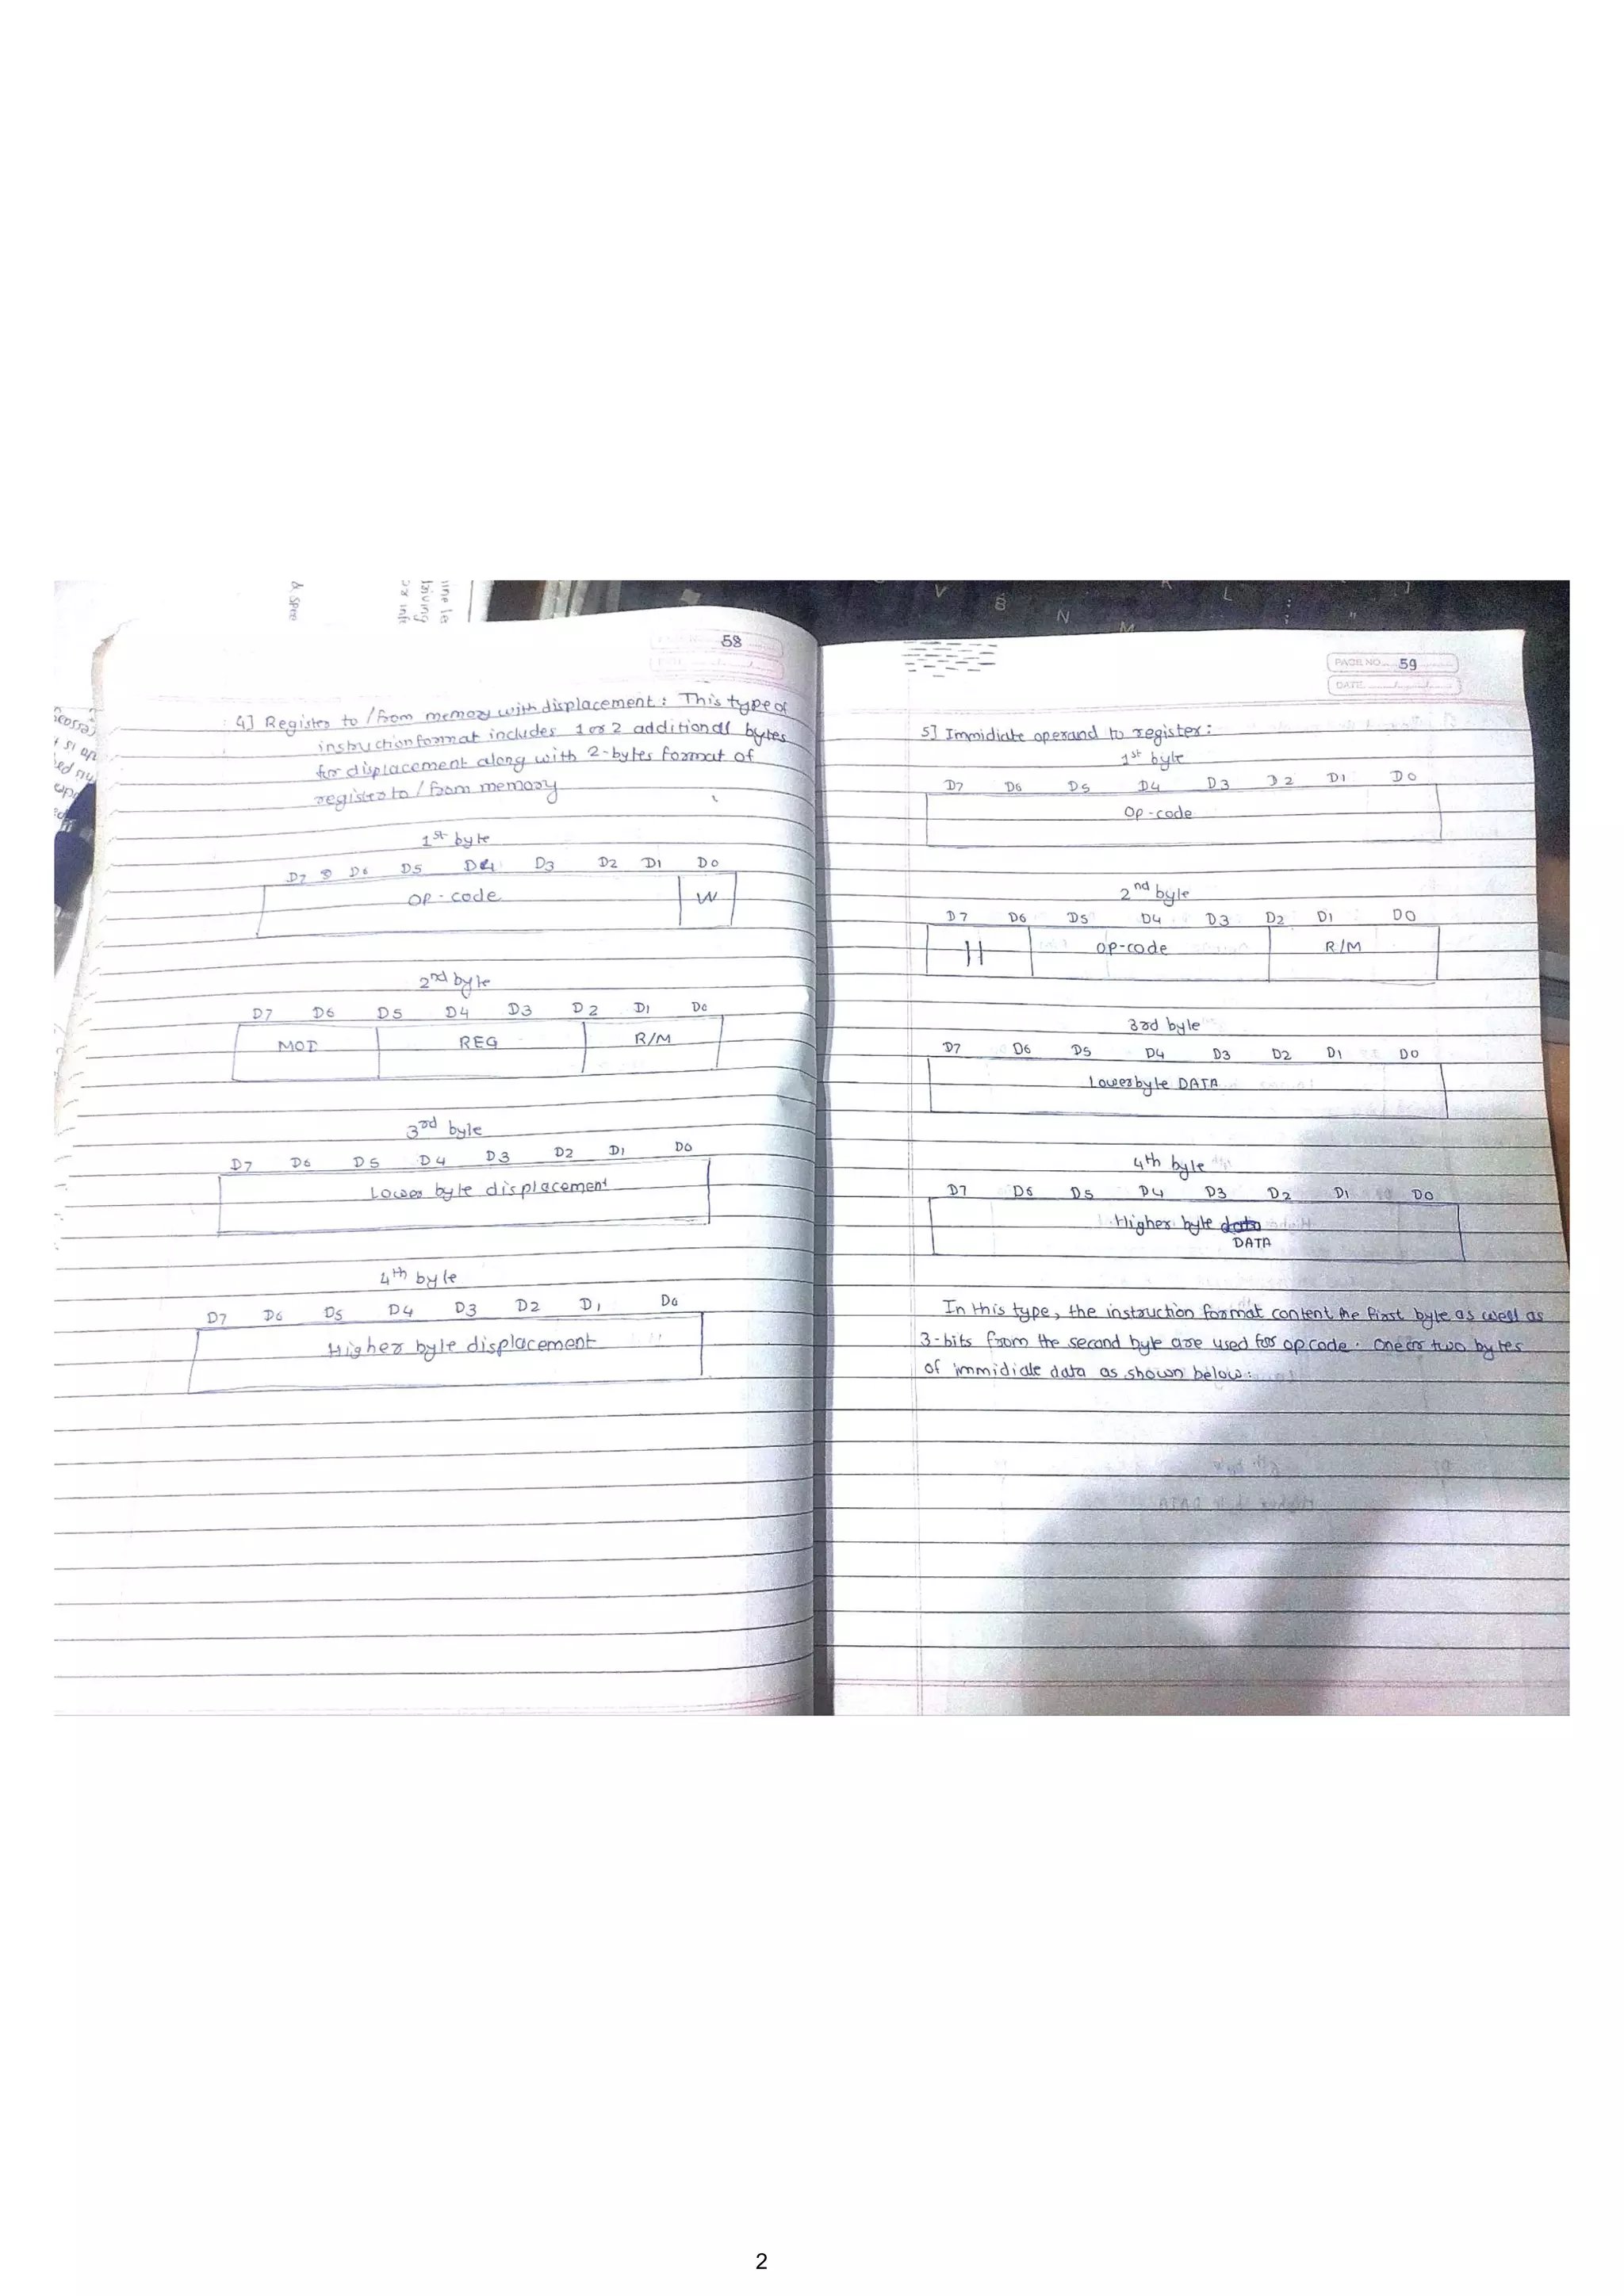 58
4] Register to / from memory with displacement : This type of
instruction format includes 1 or 2 additional bytes
for displacement along with 2-bytes format of
register to / from memory
1st byte
D7 D6 D5 D4 D3 D2 D1 D0
op-code W
2nd byte
D7 D6 D5 D4 D3 D2 D1 D0
MOD REG R/M
3rd byte
D7 D6 D5 D4 D3 D2 D1 D0
Lower byte displacement
4th byte
D7 D6 D5 D4 D3 D2 D1 D0
Higher byte displacement
PAGE NO. 59
DATE
5] Immidiate operand to register :
1st byte
D7 D6 D5 D4 D3 D2 D1 D0
Op-code
2nd byte
D7 D6 D5 D4 D3 D2 D1 D0
11 op-code R/M
3rd byte
D7 D6 D5 D4 D3 D2 D1 D0
Lower byte DATA
4th byte
D7 D6 D5 D4 D3 D2 D1 D0
Higher byte
DATA
In this type, the instruction format content the first byte as well as
3-bits from the second byte are used for opcode. One or two bytes
of immidiate data as shown below :
2